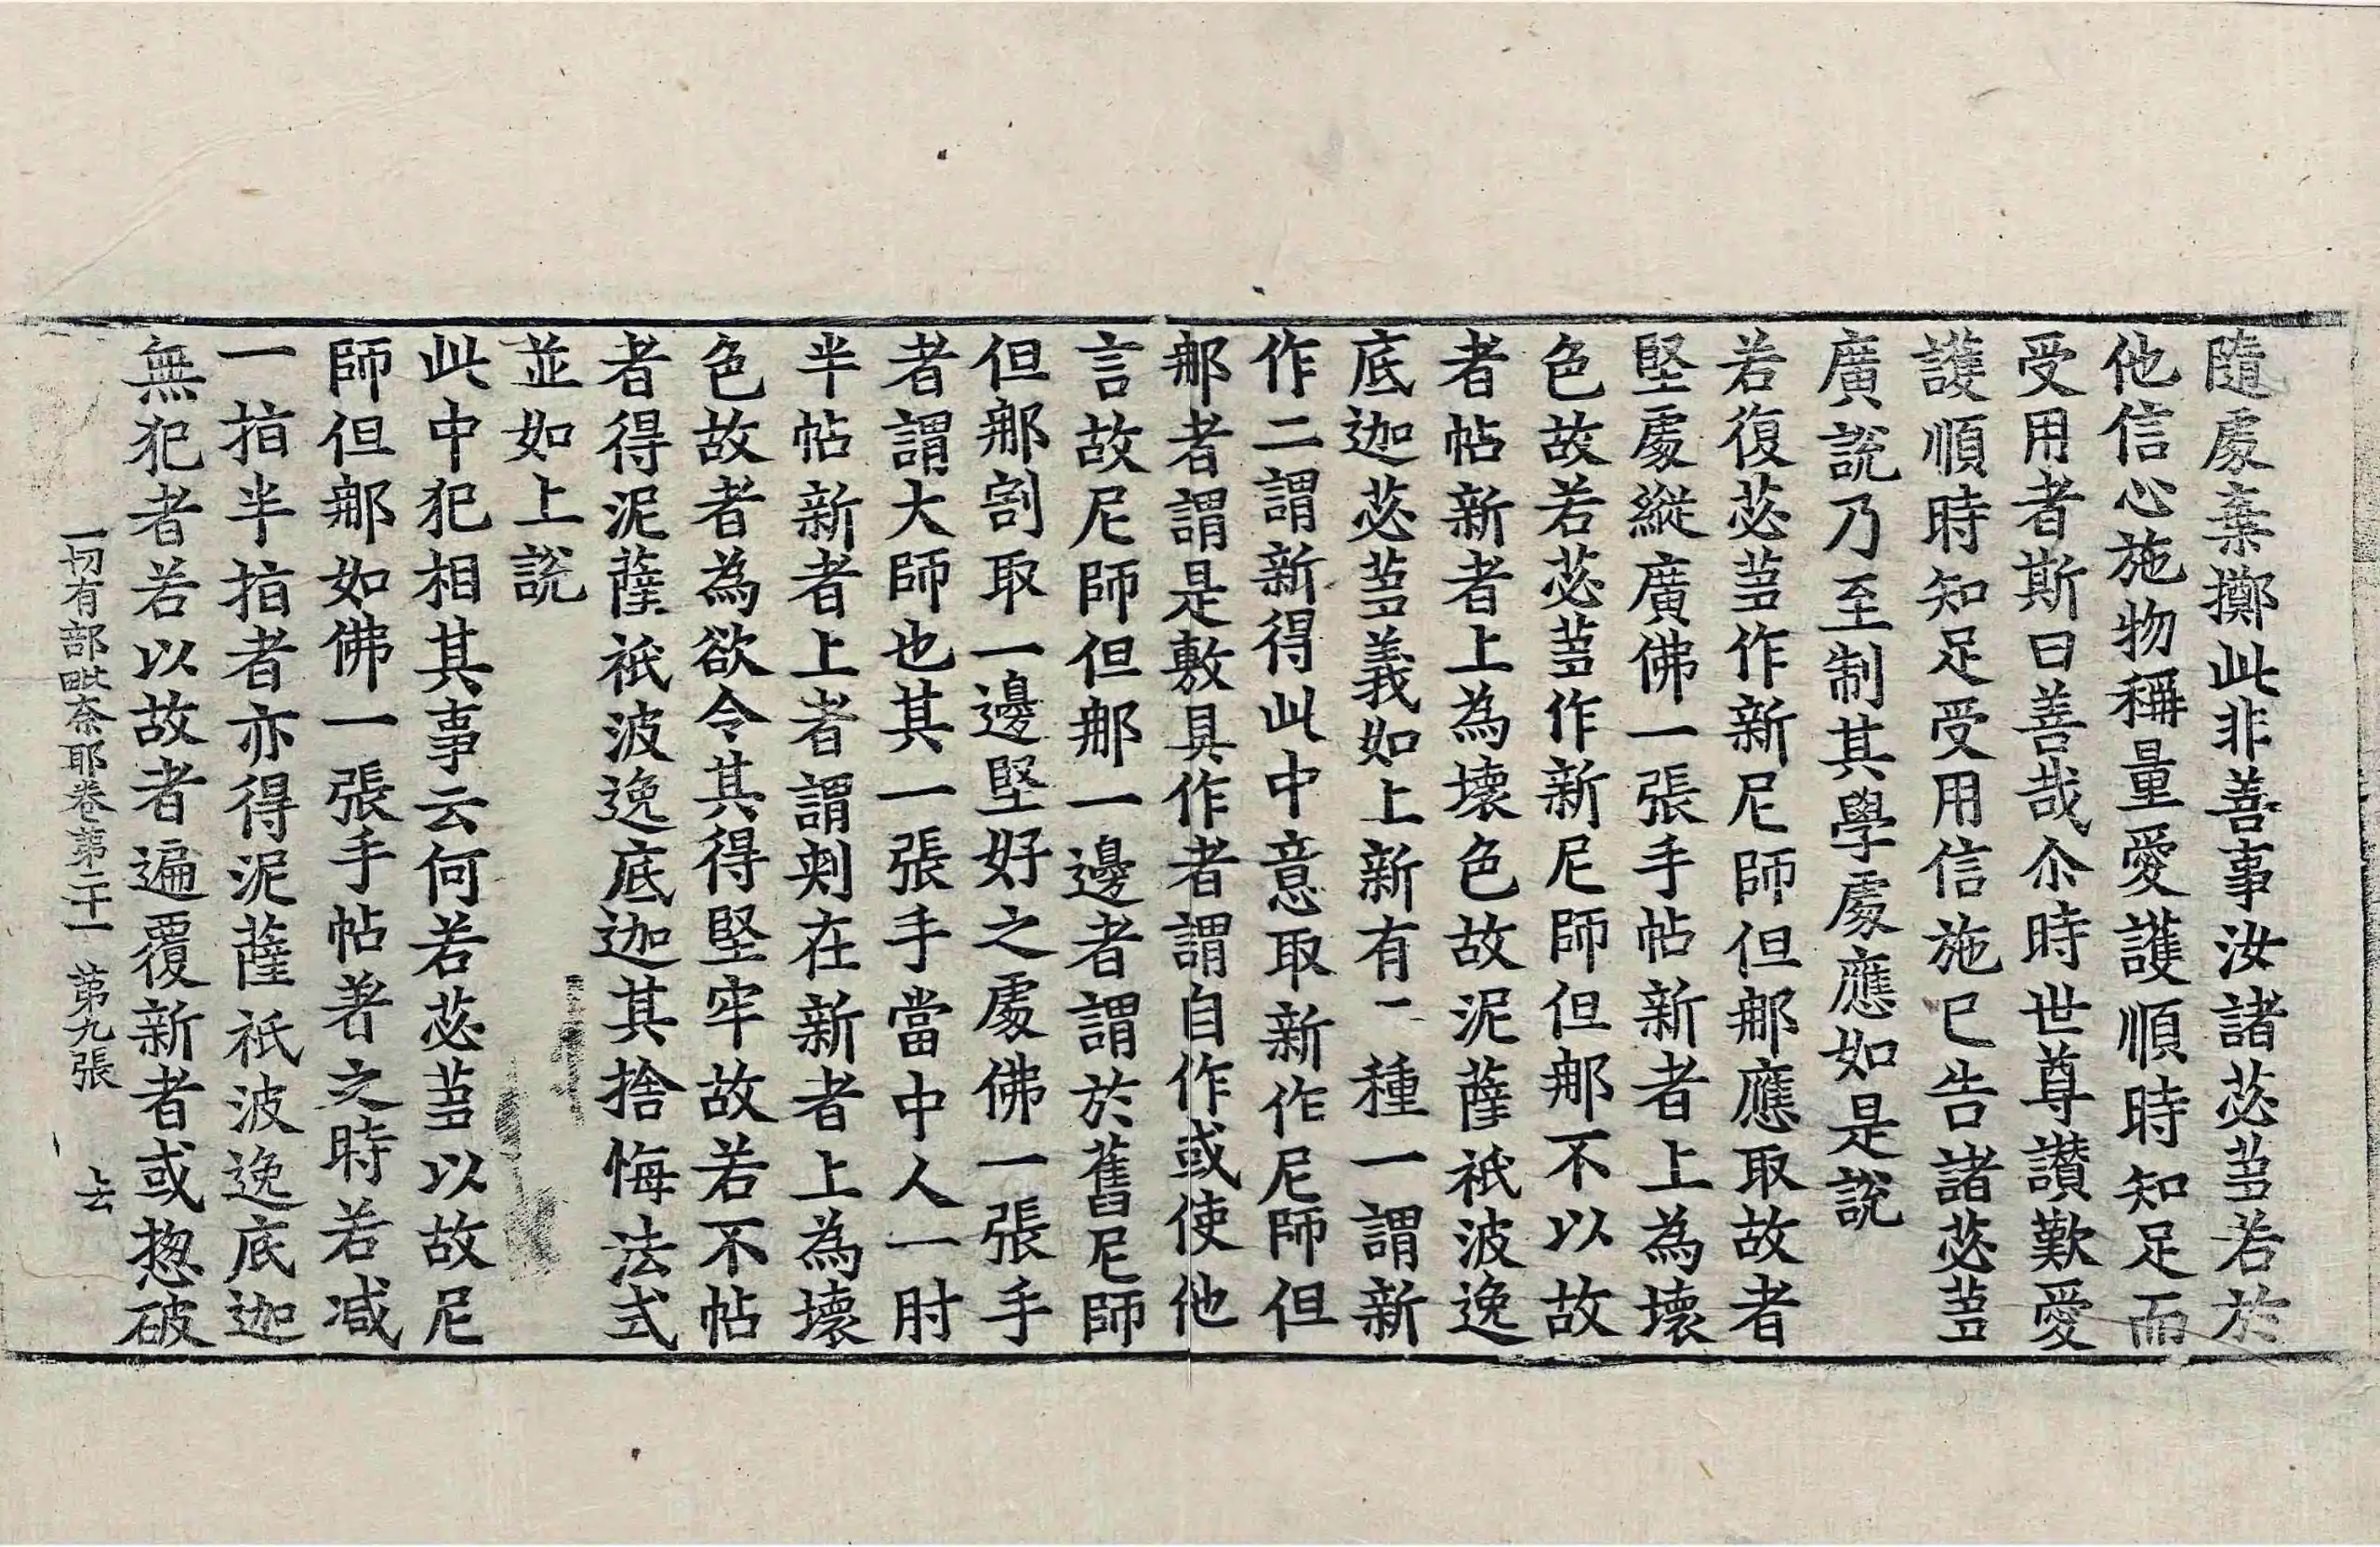 隨處棄擲此非善事汝諸苾芻若於
他信心施物稱量愛護順時知足而
受用者斯曰善哉尒時世尊讃歎愛
護順時知足受用信施已告諸苾芻
廣說乃至制其學處應如是說
若復苾芻作新尼師但那應取故者
堅處縱廣佛一張手帖新者上為壞
色故若苾芻作新尼師但那不以故
者帖新者上為壞色故泥薩祇波逸
底迦苾芻義如上新有二種一謂新
作二謂新得此中意取新作尼師但
那者謂是敷具作者謂自作或使他
言故尼師但那一邊者謂於舊尼師
但那割取一邊堅好之處佛一張手
者謂大師也其一張手當中人一肘
半帖新者上者謂刺在新者上為壞
色故者為欲令其得堅牢故若不帖
者得泥薩祇波逸底迦其捨悔法式
並如上說
此中犯相其事云何若苾芻以故尼
師但那如佛一張手帖著之時若减
一指半指者亦得泥薩祇波逸底迦
無犯者若以故者遍覆新者或惣破
一切有部毗奈耶卷第二十一 第九張 上去